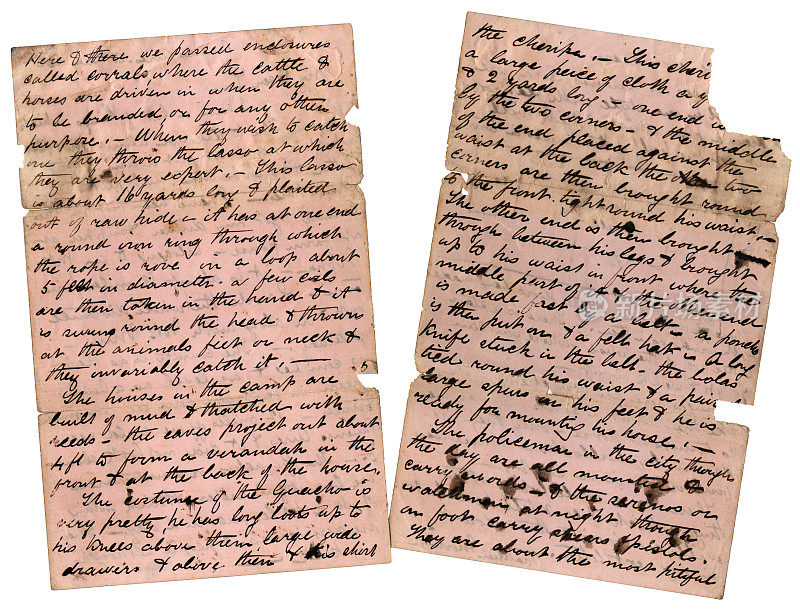 Here & there we passed enclosures
called corrals, where the cattle &
horses are driven in when they are
to be branded or for any other
purpose. – When they wish to catch
one they throw the lasso at which
they are very expert. – This lasso
is about 16 yards long & plaited
out of raw hide – it has at one end
a round iron ring through which
the rope is rove in a loop about
5 feet in diameter. a few coils
are then taken in the hand & it
is swung round the head & thrown
at the animals feet or neck &
they invariably catch it. –
The houses in the camp are
built of mud & thatched with
reeds – the eaves project out about
4 ft to form a verandah in the
front & at the back of the houses.
The costume of the Guacho is
very pretty he has long boots up to
his knees above them large wide
drawers & above them & his shirt
the cheripa. – This cheri
a large peice of cloth
& 2 yards long – one end is
by the two corners – & the middle
of the end placed against the
waist at the back the two
corners are then brought round
to the front tight round his waist. –
The other end is then brought
through between his legs & brought
up to his waist in front where the
middle part of the other end
is made fast by a belt – a poncho
is then put on & a felt hat – a long
knife stuck in the belt. the bolas
tied round his waist & a pair
large spurs on his feet & he is
ready for mounting his horse. –
The policemen in the city through
the day are all mounted &
carry swords – & the serenos or
watchmen at night though
on foot carry spears & pistols.
They are about the most pitiful
新片场素材